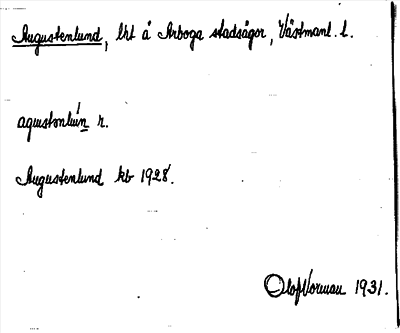 Augustenlund, lht å Arboga stadsägor, Västmanl. l.
r.
Augustenlund kb 1928.
Olof Vorman 1931.